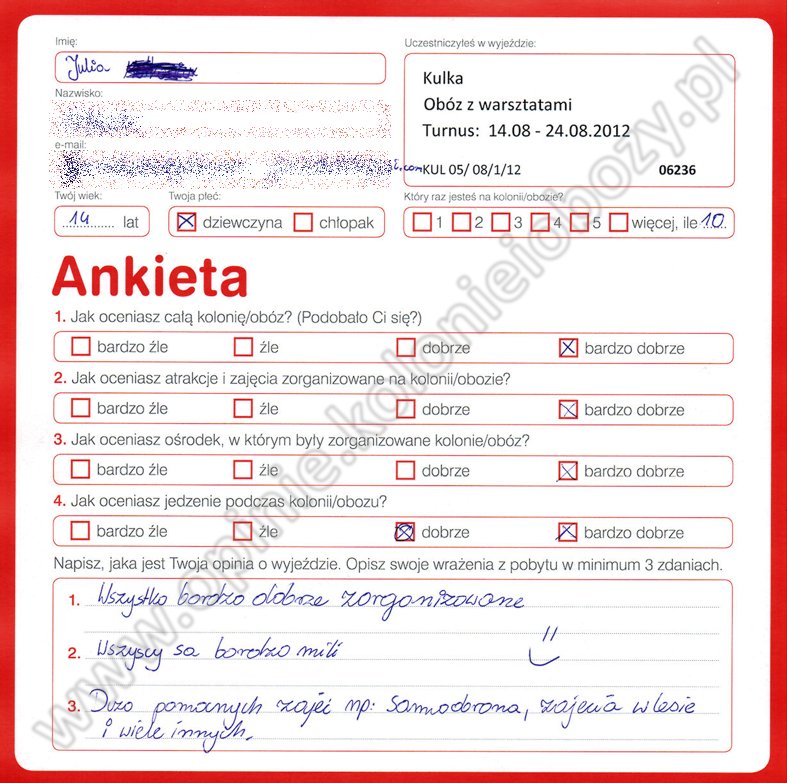 Imię:
Julia
Uczestniczyłeś w wyjeździe:
Kulka
Obóz z warsztatami
Turnus: 14.08 - 24.08.2012
KUL 05/ 08/1/12 06236
Nazwisko:
e-mail:
.com
Twój wiek:
14 lat
Twoja płeć:
dziewczyna chłopak
Który raz jesteś na kolonii/obozie?
1 2 3 4 5 więcej, ile 10
Ankieta
1. Jak oceniasz całą kolonię/obóz? (Podobało Ci się?)
bardzo źle źle dobrze bardzo dobrze
2. Jak oceniasz atrakcje i zajęcia zorganizowane na kolonii/obozie?
bardzo źle źle dobrze bardzo dobrze
3. Jak oceniasz ośrodek, w którym były zorganizowane kolonie/obóz?
bardzo źle źle dobrze bardzo dobrze
4. Jak oceniasz jedzenie podczas kolonii/obozu?
bardzo źle źle dobrze bardzo dobrze
Napisz, jaka jest Twoja opinia o wyjeździe. Opisz swoje wrażenia z pobytu w minimum 3 zdaniach.
1. Wszystko bardzo dobrze zorganizowane
2. Wszyscy sa bardzo mili
3. Dużo zajęć np: samoobrona, zajęcia w lesie
i wiele innych.
www.opinie.kolonieiobozy.pl